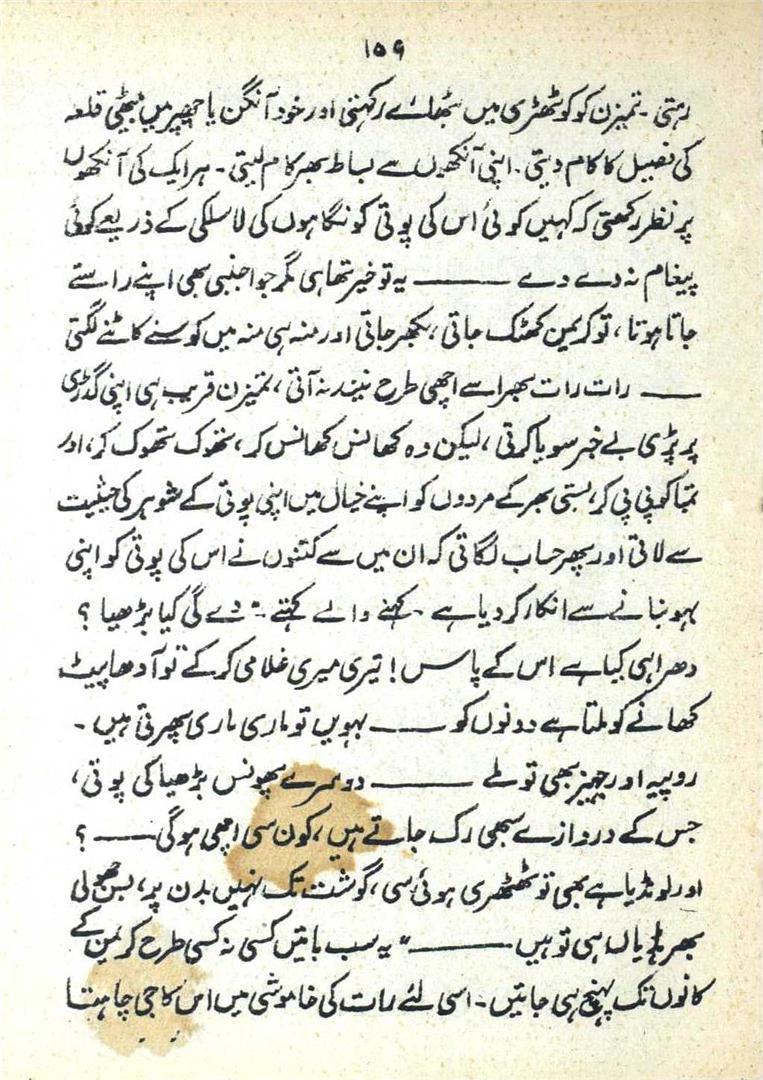 ۱۵۹
رہتی ۔ تمیزن کو کوٹھڑی میں بٹھائے رکھتی اور خود آنگن یا چھپر میں بیٹھی قلعہ
کی فصیل کا کام دیتی ۔ اپنی آنکھوں سے بساط بھر کام لیتی ۔ ہر ایک کی آنکھوں
پر نظر رکھتی کہ کہیں کوئی اس کی پوتی کو نگاہوں کی لاسلکی کے ذریعے کوئی
پیغام نہ دے دے ——— یہ تو خیر تھا ہی مگر جو اجنبی بھی اپنے راستے
جاتا ہوتا ، تو کریمن کھٹک جاتی ، بکھر جاتی اور منہ ہی منہ میں کوسنے کاٹنے لگتی
—— رات رات بھر اسے اچھی طرح نیند نہ آتی ، تمیزن قریب ہی اپنی گدڑی
پر پڑی بے خبر سویا کرتی ، لیکن وہ کھانس کھانس کر ، تھوک تھوک کر ، اور
تمباکو پی پی کر ، بستی بھر کے مردوں کو اپنے خیال میں اپنی پوتی کے شوہر کی حیثیت
سے لاتی اور پھر حساب لگاتی کہ ان میں سے کتنوں نے اس کی پوتی کو اپنی
بہو بنانے سے انکار کر دیا ہے ۔ کہنے والے کہتے ۔ " دے گی کیا بڑھیا ؟
دھرا ہی کیا ہے اس کے پاس ! تیری میری غلامی کر کے تو آدھا پیٹ
کھانے کو ملتا ہے دونوں کو —— بہویں تو ماری ماری پھرتی ہیں ۔
روپیہ اور جہیز بھی تو ملے ——— دوسرے پھونس بڑھیا کی پوتی ،
جس کے دروازے سبھی رک جاتے ہیں ، کون سی اچھی ہوگی —— ؟
اور لونڈیا ہے بھی تو ٹھٹھری ہوئی سی ، گوشت تک نہیں بدن پر ، بس جھولی
بھر ہڈیاں ہی تو ہیں ——— " یہ سب باتیں کسی نہ کسی طرح کریمن کے
کانوں تک پہنچ ہی جاتیں ۔ اسی لئے رات کی خاموشی میں اس کا جی چاہتا